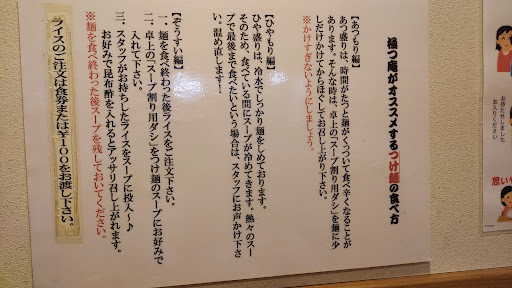 極つ庵がオススメするつけ麺の食べ方
【あつもり編】
あつ盛りは、時間がたつと麺がくっついて食べ辛くなることが
あります。そんな時は、卓上の「スープ割り用ダシ」を麺に少
しだけかけてからほぐしてお召し上がり下さい。
※かけすぎないようにしましょう。
【ひやもり編】
ひや盛りは、冷水でしっかり麺をしめております。
そのため、食べている間にスープが冷めてきます。熱々のスー
プで最後まで食べたいという場合は、スタッフにお声かけ下さ
い。温め直します！
【ぞうすい編】
一、麺を食べ終わった後ライスをご注文下さい。
二、卓上の「スープ割り用ダシ」をつけ麺のスープにお好みで
入れて下さい。
三、スタッフがお持ちしたライスをスープに投入～♪
お好みで昆布酢を入れるとアッサリ召し上がれます。
※麺を食べ終わった後スープを残しておいてください。
ライスのご注文は食券または￥100をお渡し下さい。
お待たせしました
思いや